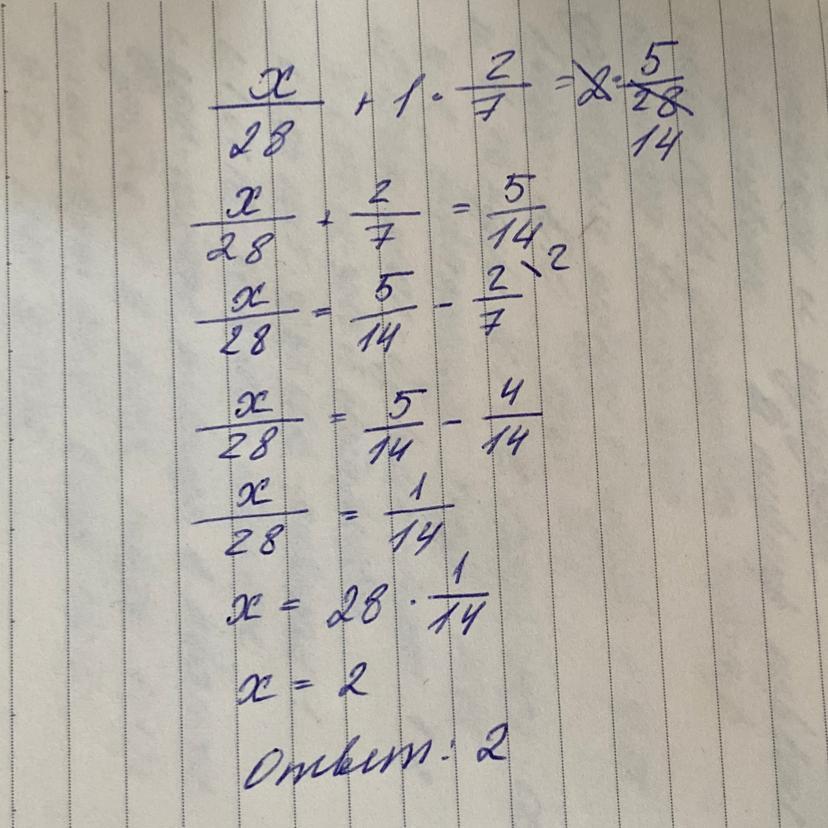 x/28 + 1 · 2/7 = 2 · 5/28 14
x/28 + 2/7 = 5/14
x/28 = 5/14 - 2/7 \2
x/28 = 5/14 - 4/14
x/28 = 1/14
x = 28 · 1/14
x = 2
Ответ: 2